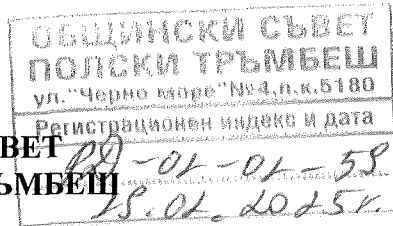 ОБЩИНСКИ СЪВЕТ
ПОЛСКИ ТРЪМБЕШ
ул."Черно море"№4,п.к.5180
Регистрационен индекс и дата
ВЕТ
ЪМБЕШ